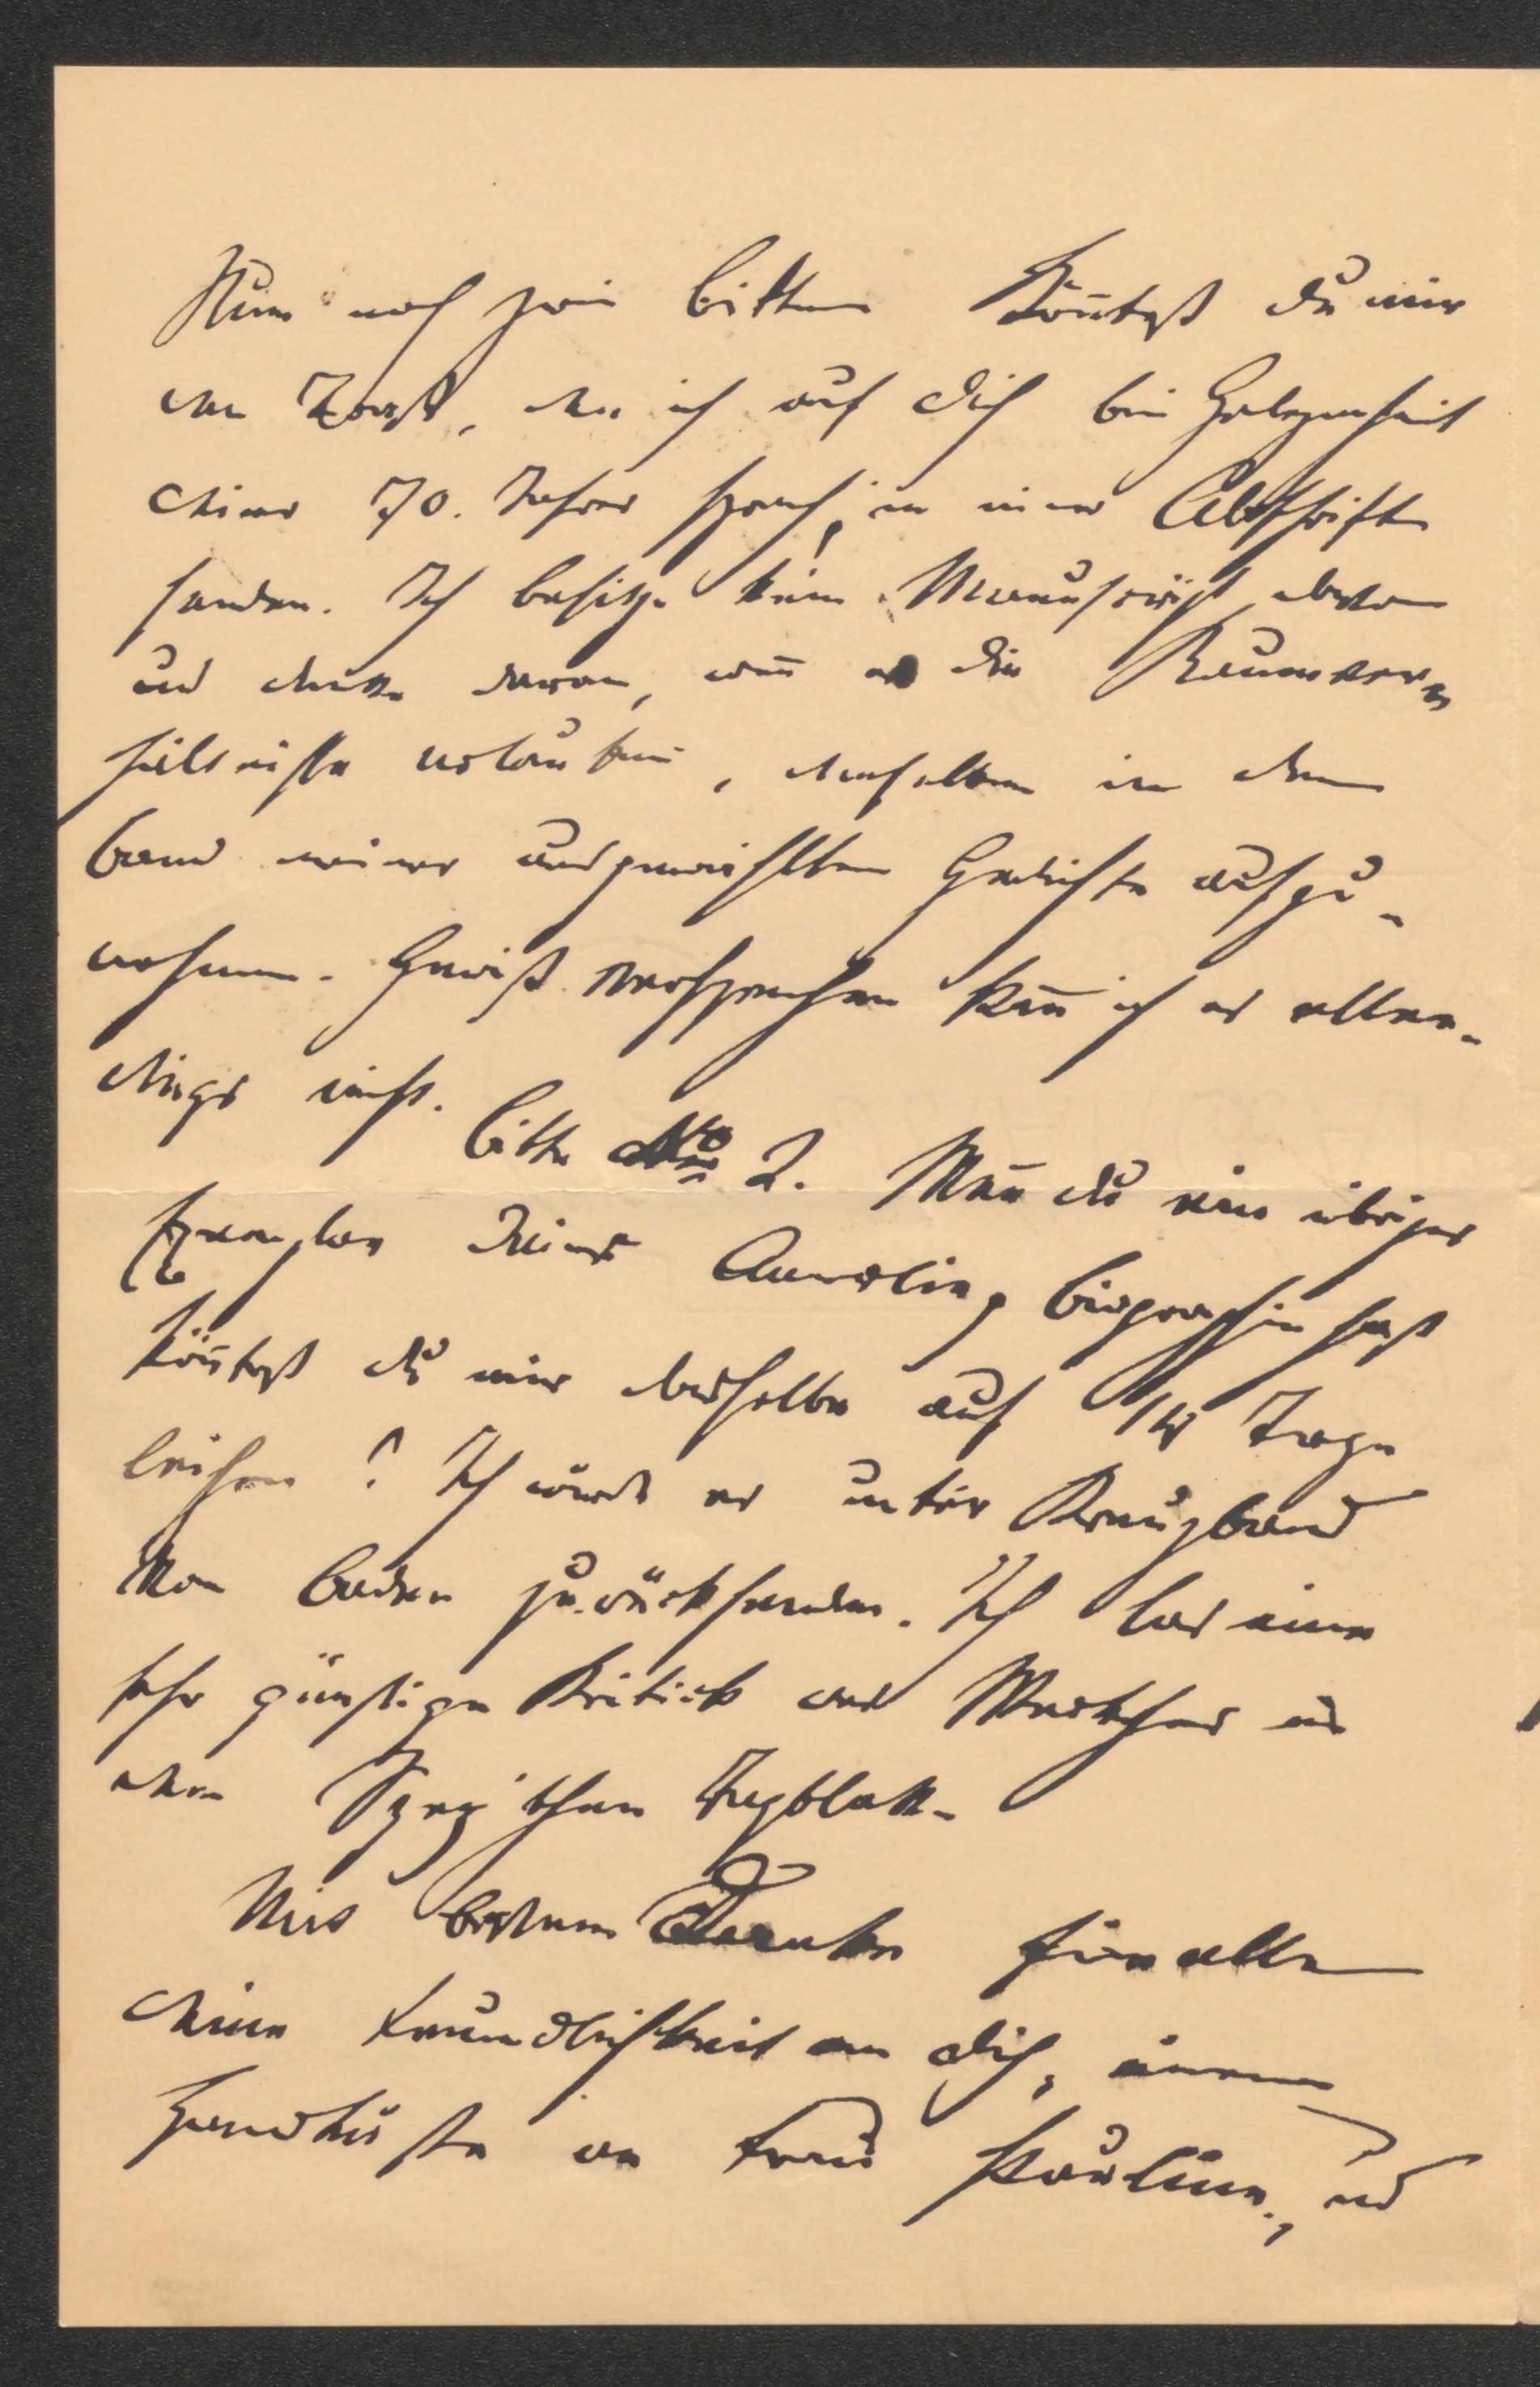 Nun noch zwei Bitten Könntest du mir
den Toast, den ich auf dich bei Gelegenheit
deines 70. Jahres sprach, in einer Abschrift
senden. Ich besitze kein Manuscript davon
und denke daran, wenn es die Raumver-
hältnisse erlauben, denselben in den
Band meiner ausgewählten Gedichte aufzu-
nehmen. Gewiß versprechen kann ich es aller-
dings nicht.
Bitte No 2. Wenn du ein übriges
Exemplar deiner biographie hast
könntest du mir dasselbe auf 14 Tage
leihen? Ich würde es unter Kreuzband
von Baden zurücksenden. Ich las eine
sehr günstige Kritick des Werkes in
dem Tagblatt.
Mit bestem Danke für alle
deine Freundlichkeit an dich, einen
Handkuss an Frau Pauline, und